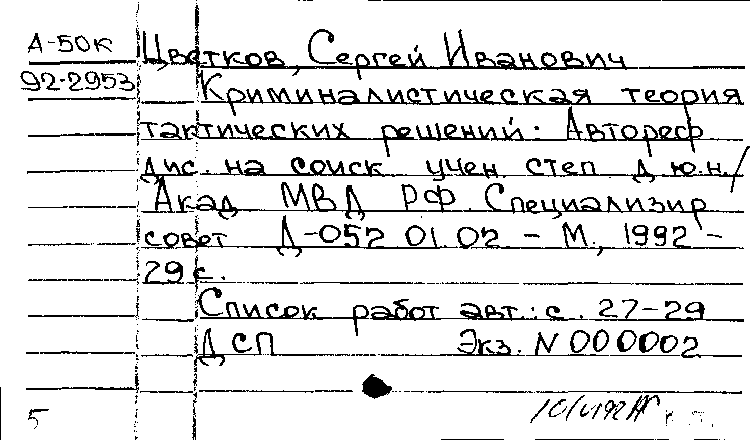 А-50к
92-2953
Цветков, Сергей Иванович
Криминалистическая теория
тактических решений: Автореф
дис. на соиск учен. степ д.ю.н./
Акад МВД РФ. Специализир
совет Д-052 01.02 - М., 1992 -
29 с.
Список работ авт.: с. 27-29
ДСП Экз. N 000002
5